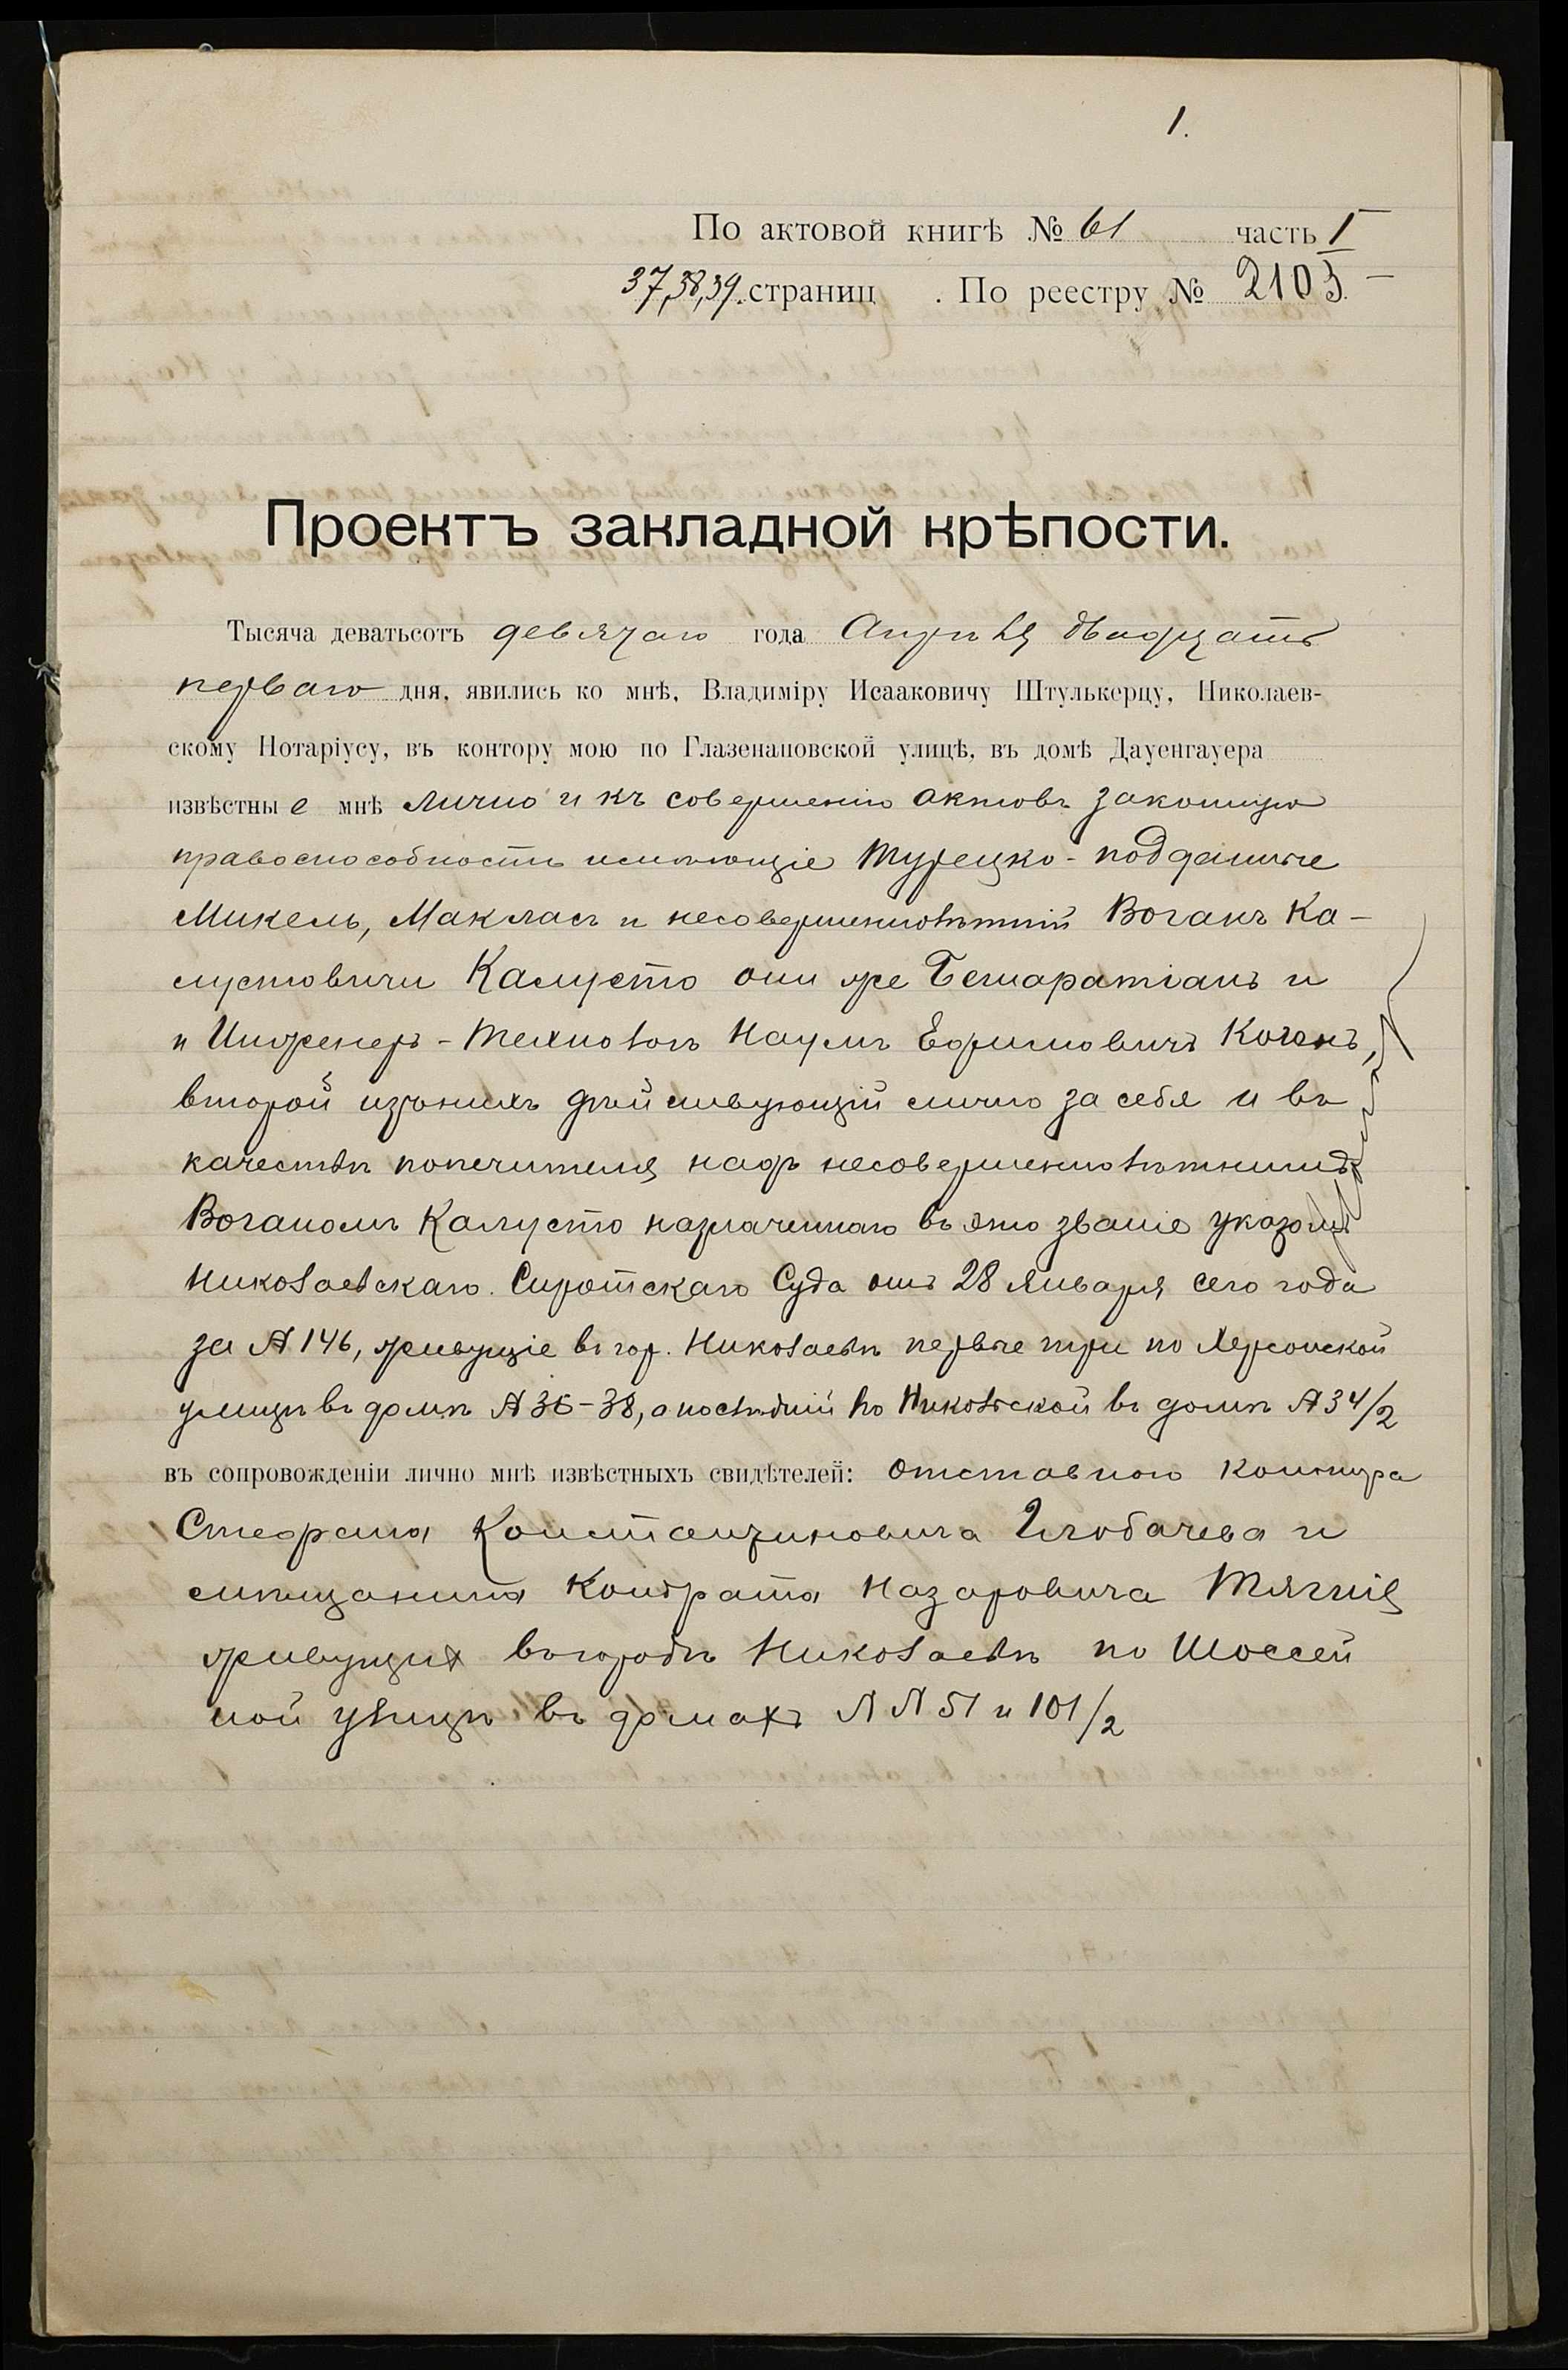 1.
По актовой книгѣ № 61 часть I
37,38,39. страниц . По реестру № 2103.
Проектъ закладной крѣпости.
Тысяча деватьсотъ девятаго года Апрѣля двадцать
перваго дня, явились ко мнѣ, Владиміру Исааковичу Штулькерцу, Николаев-
скому Нотаріусу, въ контору мою по Глазенаповской улицѣ, въ домѣ Дауенгауера
извѣстны е мнѣ лично и къ совершенію актовъ законную
правоспособность имѣющіе Турецко-подданные
Микель, Макласъ и несовершеннолѣтній Воганъ Ка-
лустовичи Калусто они же Бешаратіанъ и
и Инженеръ-Технологъ Наумъ Ефимовичъ Коганъ,
второй изъ нихъ дѣйствующій лично за себя и въ
качествѣ попечителя надъ несовершеннолѣтнимъ
Воганомъ Калусто назначеннаго въ это званіе указомъ
Николаевскаго Сиротскаго Суда отъ 28 Января сего года
за № 146, живущіе въ гор. Николаевѣ первые три по Херсонской
улицѣ въ домѣ № 36-38, а послѣдній по Никольской въ домѣ № 34/2
въ сопровожденіи лично мнѣ извѣстныхъ свидѣтелей: отставного
Стефана Константиновича Глобачева и
мѣщанина Кондрата Назаровича Тягнія
живущихъ въ городѣ Николаевѣ по Шоссей
ной улицѣ въ домахъ №№ 51 и 101/2